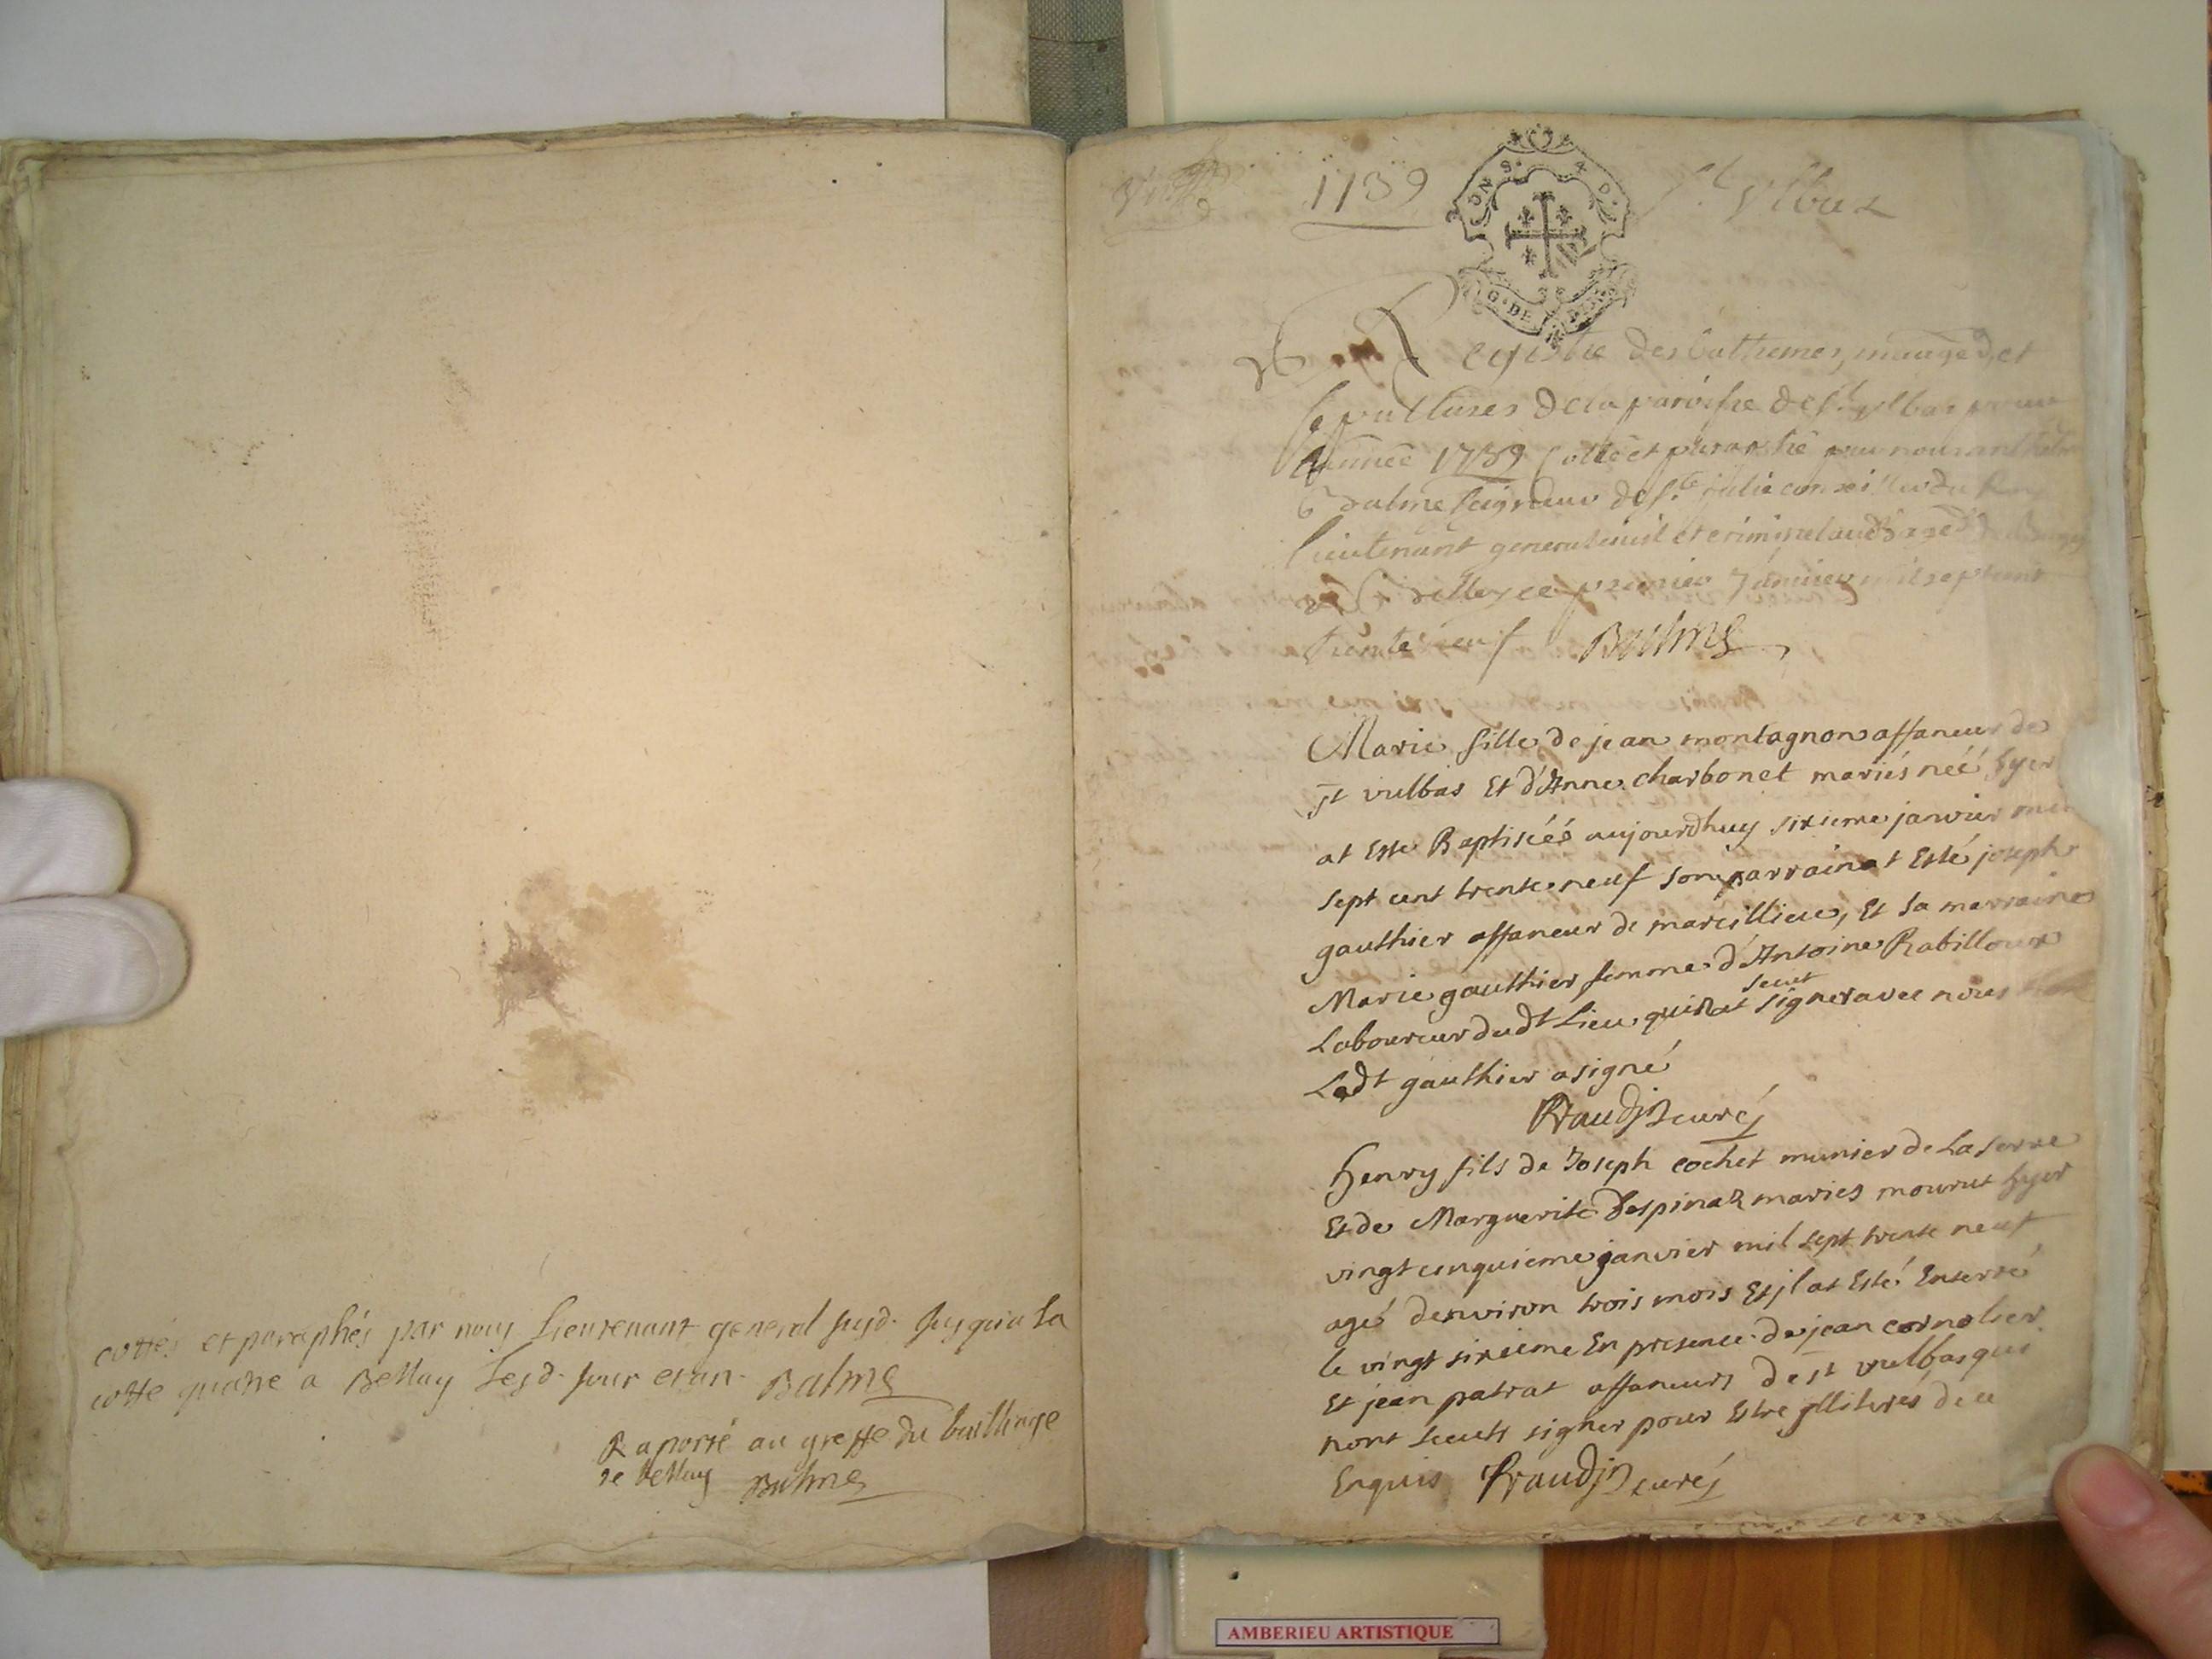 cottés et paraphés par nous Lieutenant general susd. jusqu'a la
cotte quatre a Bellay lesd. jour et an. Balme
Raporté au greffe du bailliage
de bellay Balme
1739
St Vlbas
Registre des batêmes, mariages, et
sepultures de la paroisse de St vulbas pour
année 1739 Cotté et paraphé par nous
Balme seigneur de Ste julie conseiller du Roy
lieutenant general civil et criminel au
Belley ce premier Janvier mil sept cent
trente neuf Balme
Marie fille de jean montagnon affaneur de
st vulbas Et d'Anne charbonet mariés néé hyer
at Este Baptiséés aujourdhuy sixieme janvier
sept cent trente neuf son parrain at Esté joseph
gauthier affaneur de marcillieu, Et sa marraine
Marie gauthier femme d'Antoine Rabilloux
Laboureur dudt Lieu qui nat sceut signer avec nous
Ledt gauthier a signé
Praudin curé
henry fils de Joseph cochet munier de La serre
Et de Marguerite Despinaz maries mourut hyer
vingt cinquieme janvier mil sept trente neuf
agé denviron trois mois Et jl at Esté Enterré
le vingt sixieme En presence de jean cornolier
Et jean patrat affaneurs de st vulbas qui
nont sceuts signer pour Estre jllitérés de ce
Enquis Praudin curé
CONS. A D.
G. DE
AMBERIEU ARTISTIQUE